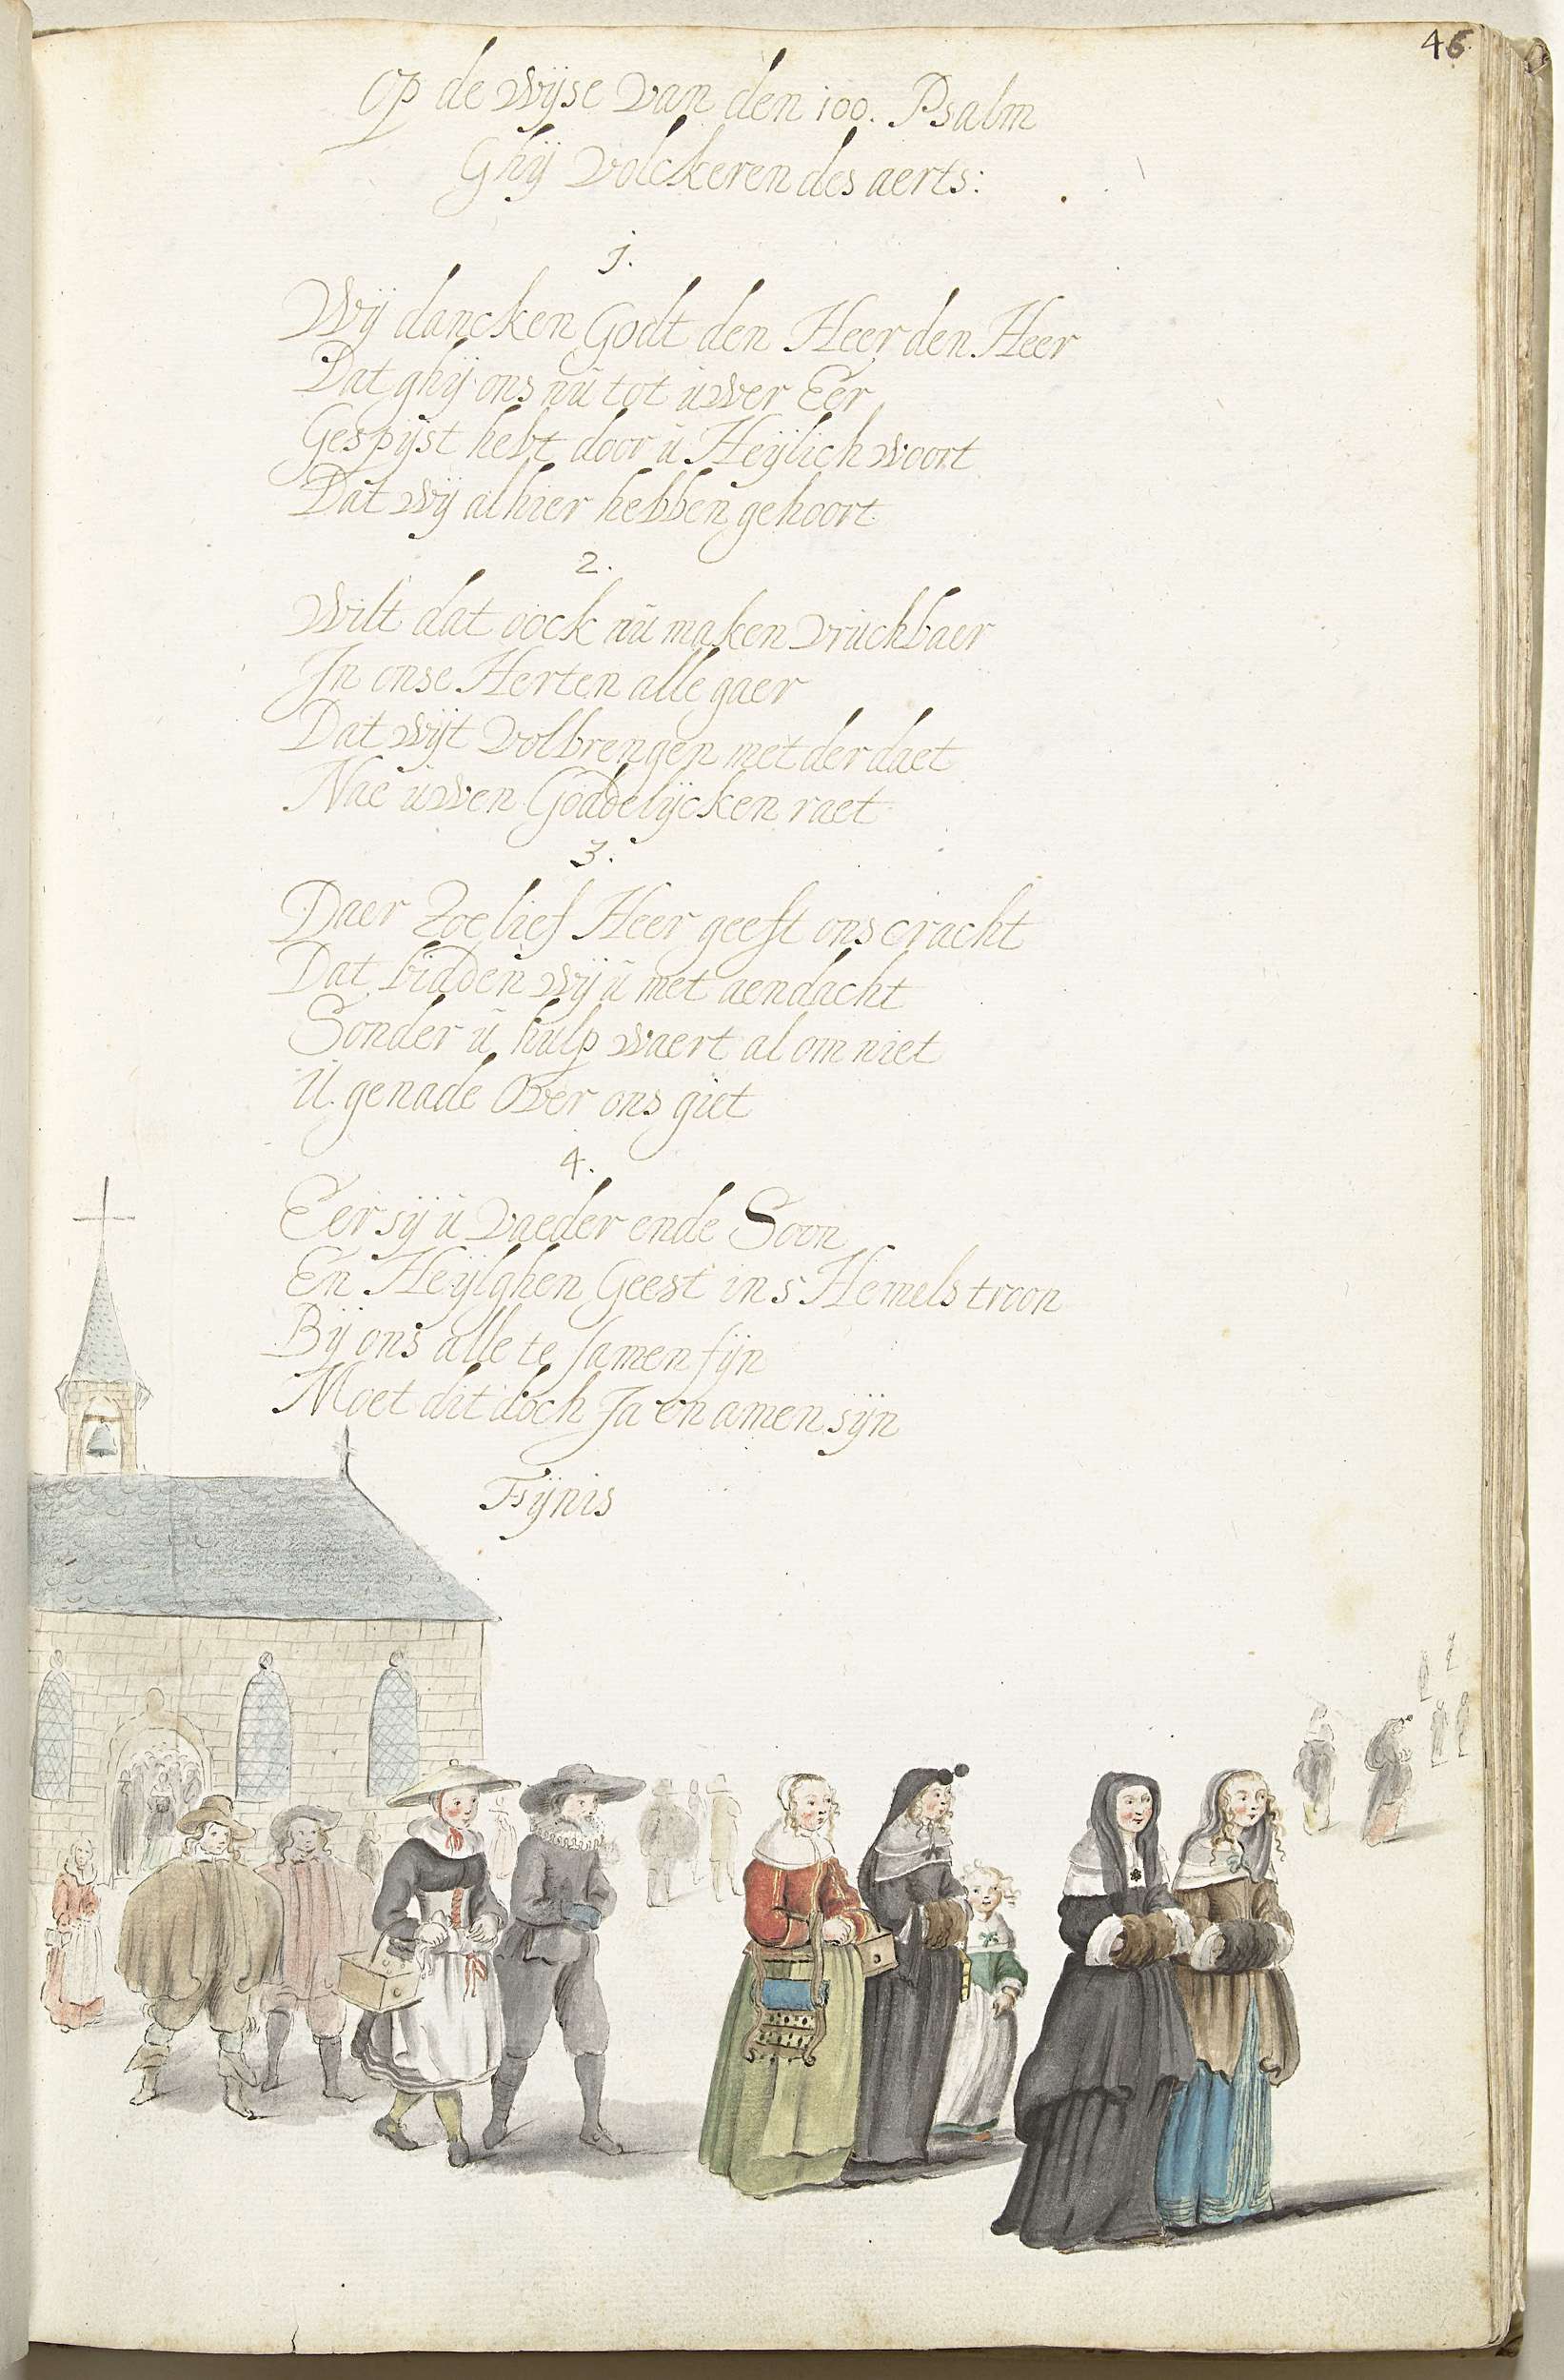 46
Op de wijse van den 100. Psalm
Ghij volckeren des aerts:
1.
Wij dancken Godt den Heer den Heer
Dat ghij ons nu tot uwer Eer
Gespijst hebt door u Heijlich woort
Dat wij alhier hebben gehoort
2.
Wilt dat oock nu maken vruchbaer
In onse Herten alle gaer
Dat wijt volbrengen met der daet
Nae uwen Goddelijcken raet
3.
Daer Zoe lief Heer geeft ons cracht
Dat bidden wij u met aendacht
Sonder u hulp waert al om niet
U genade Over ons giet
4.
Eer sij u vaeder ende Soon
En Heijlghen Geest in s Hemels troon
Bij ons alle te samen sijn
Moet dit doch Ja en amen sijn
Fijnis